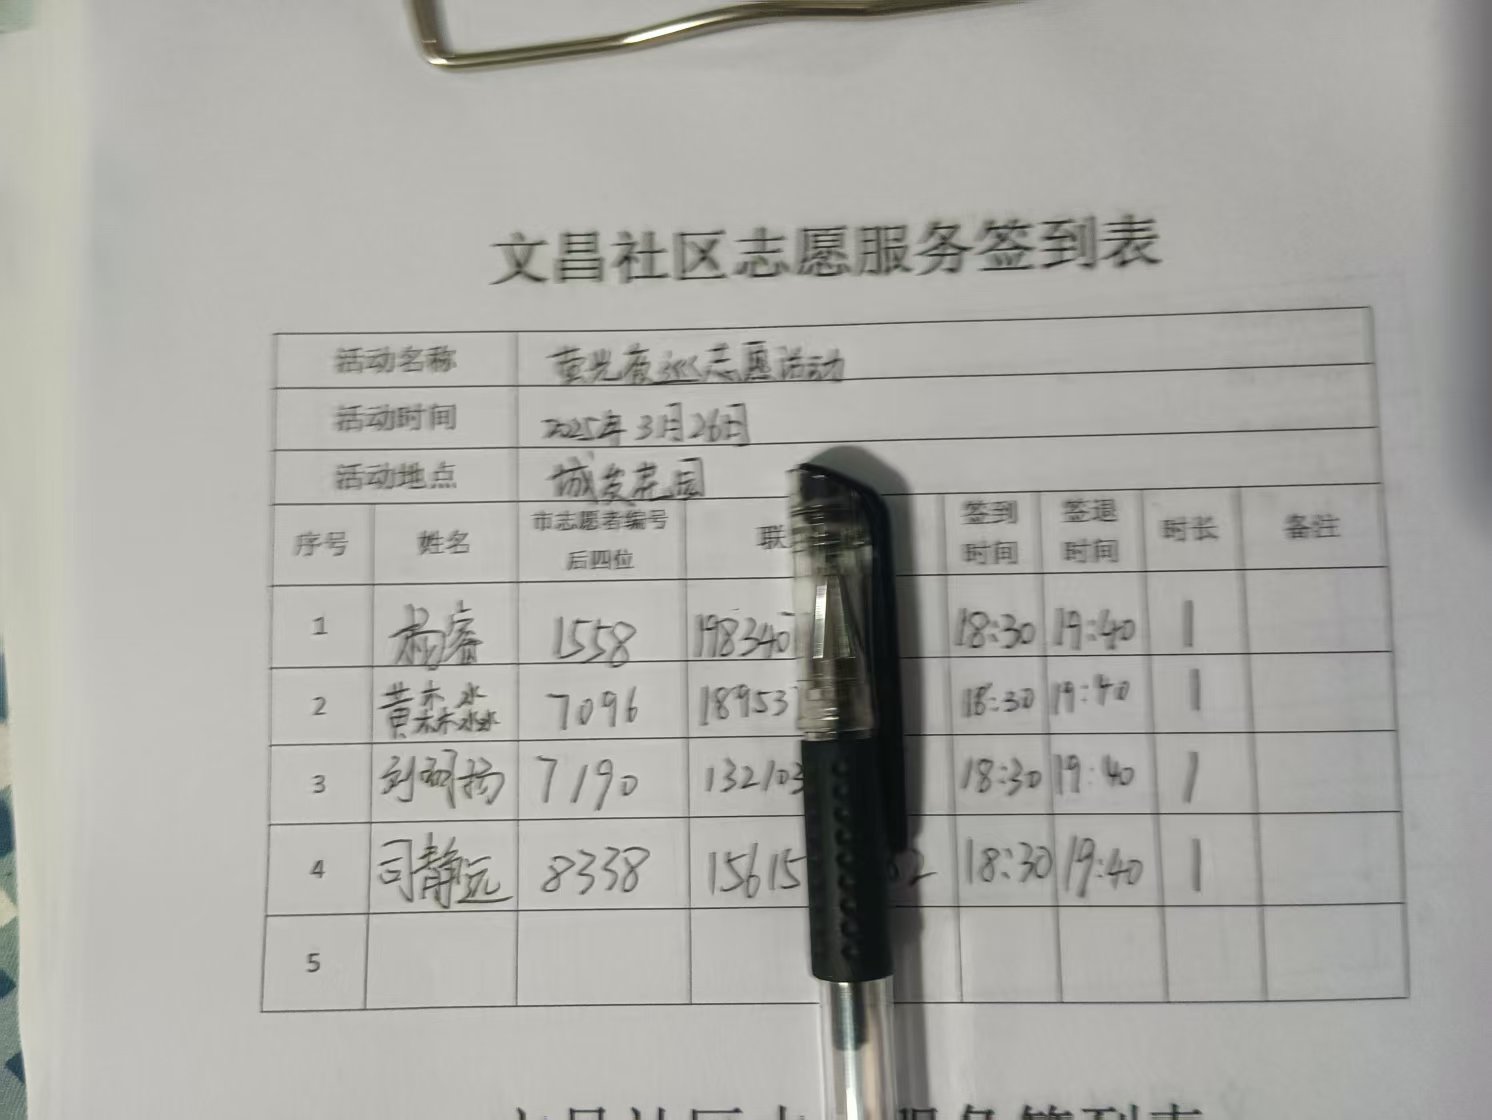 文昌社区志愿服务签到表
活动名称 萤光夜巡志愿活动
活动时间 2025年3月26日
活动地点 城发花园
序号 姓名 市志愿者编号后四位 联 签到时间 签退时间 时长 备注
1 杨睿 1558 198340 18:30 19:40 1
2 黄森淼 7096 189537 18:30 19:40 1
3 刘砚扬 7190 132103 18:30 19:40 1
4 司静远 8338 15615 82 18:30 19:40 1
5